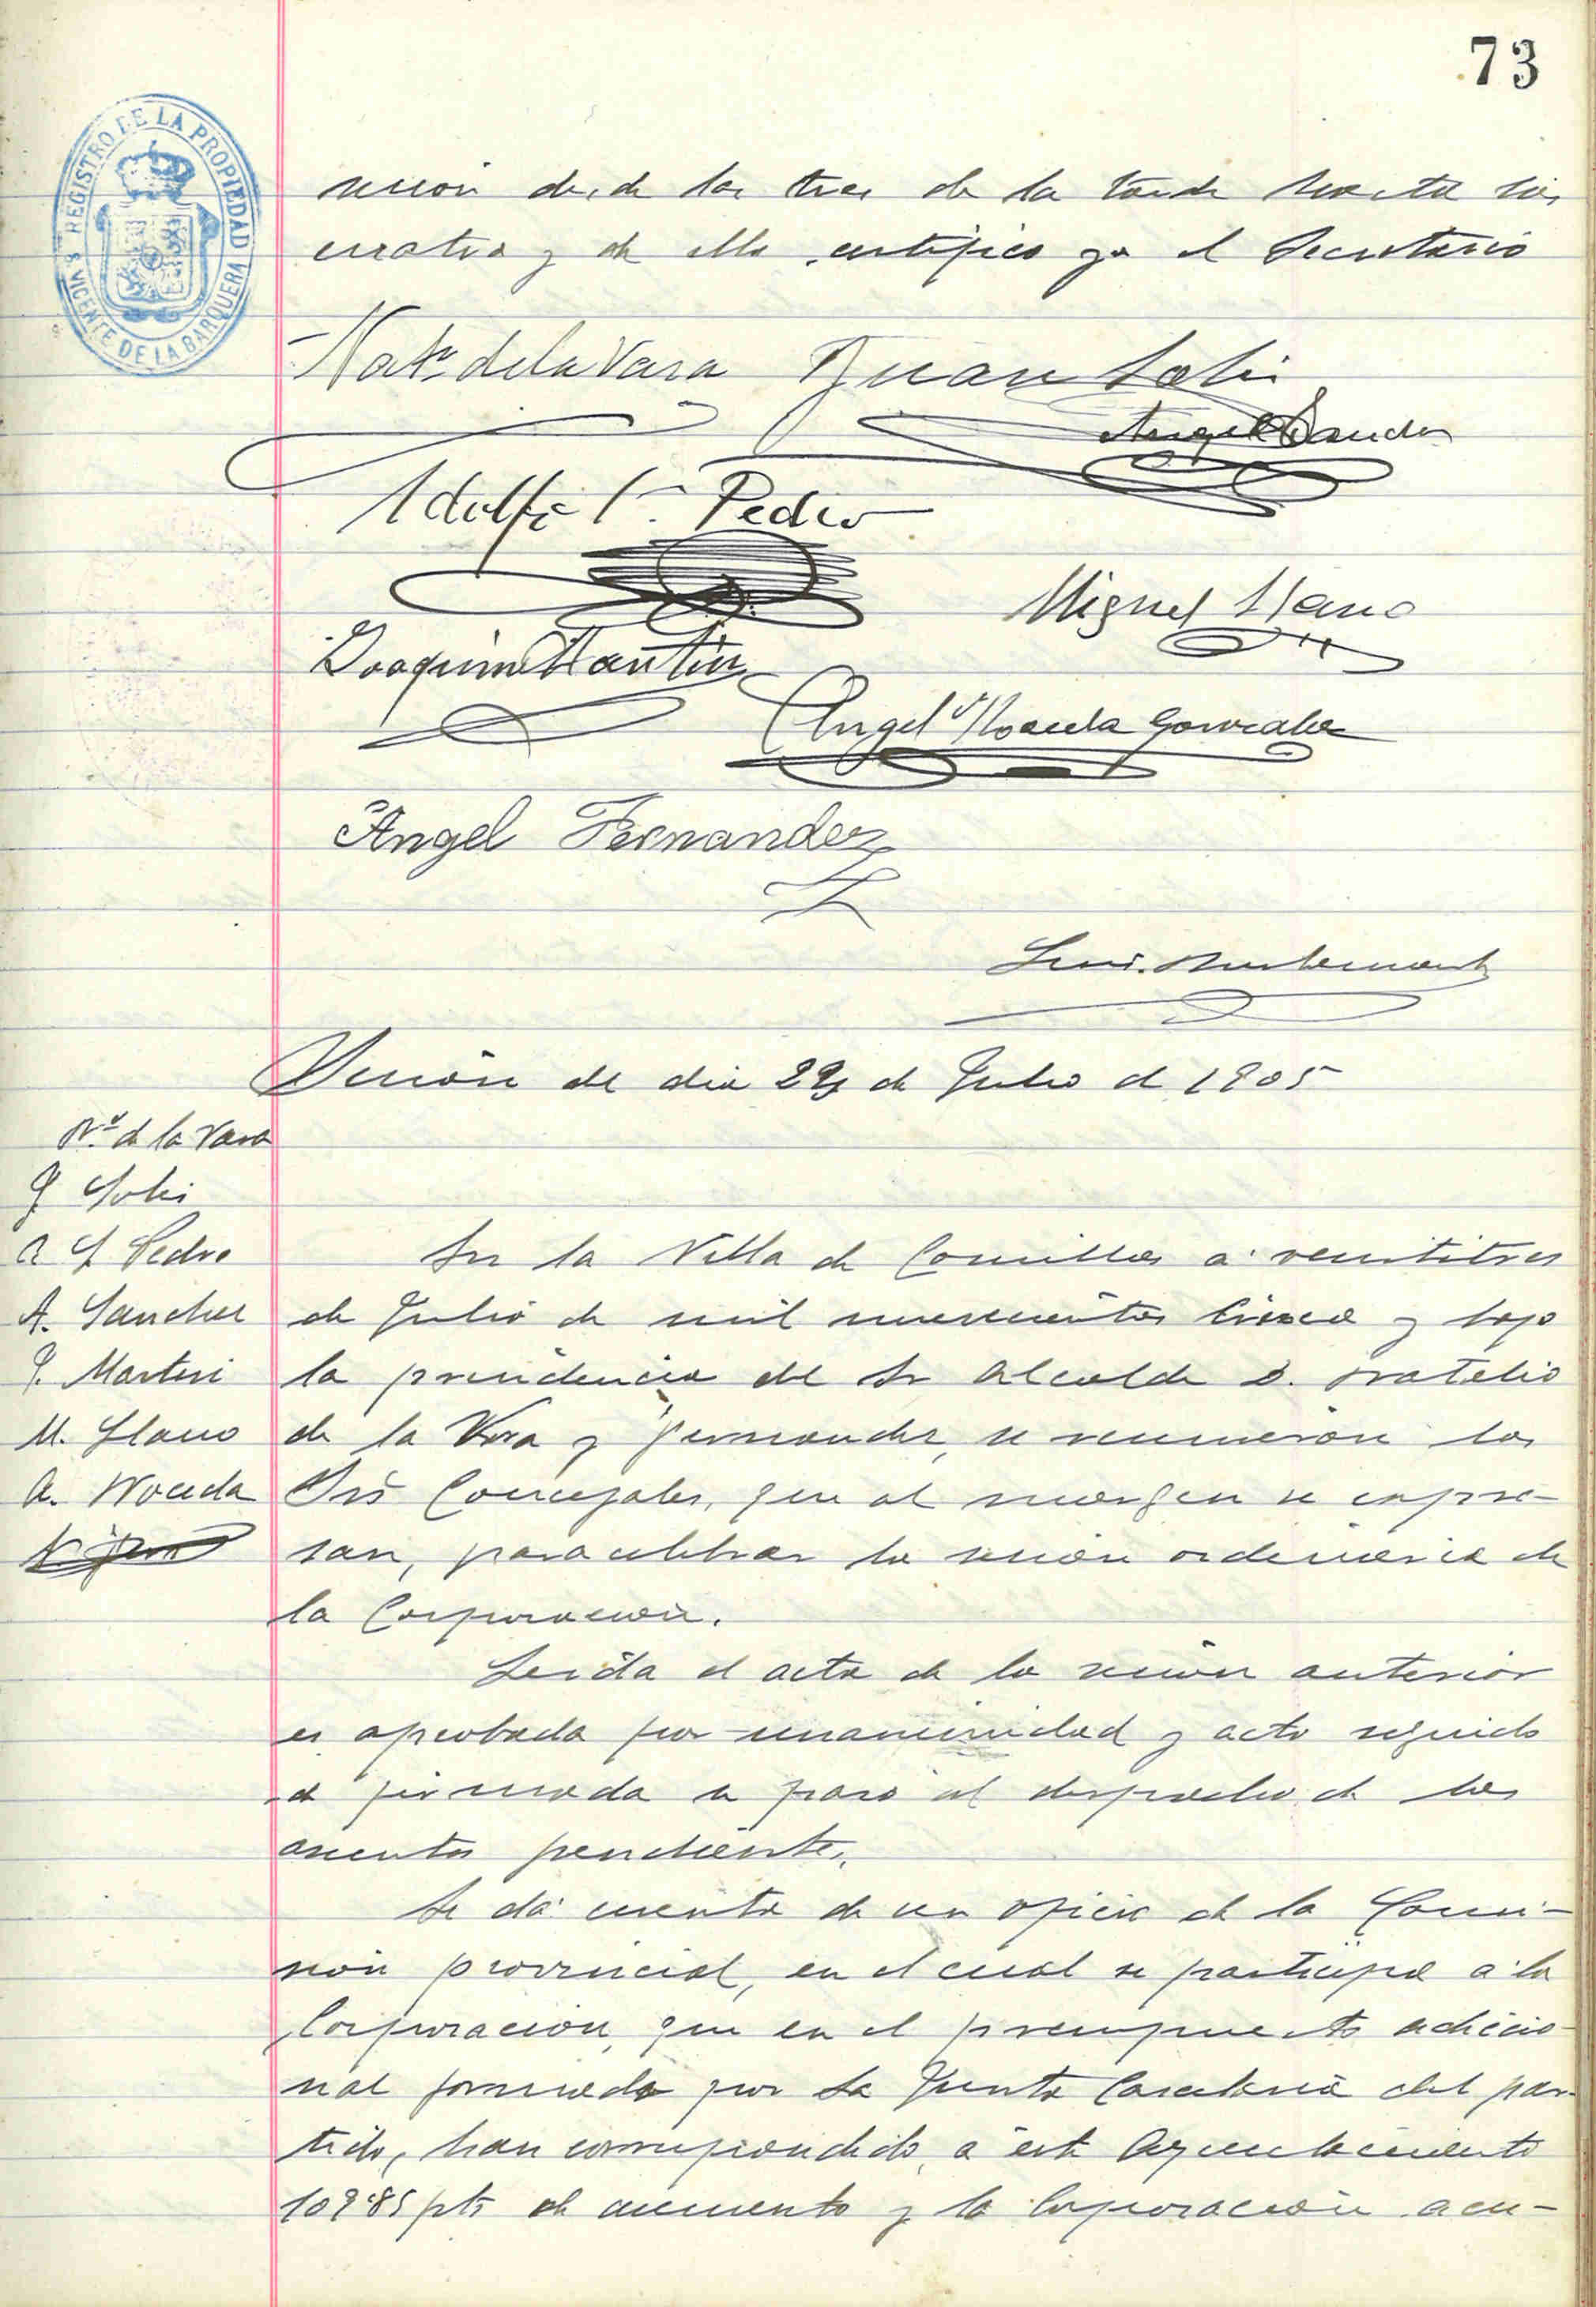 73
REGISTRO DE LA PROPIEDAD
S. VICENTE DE LA BARQUERA
sesion desde las tres de la tarde hasta las
cuatro y de ello certifico yo el Secretario
Nat.º de la Vara Juan Solis
Angel Sanchez
Adolfo Pedro
Miguel Llano
Joaquin Martin
Angel Noceda Gonzalez
Angel Fernandez
Sesión de dia 23 de Julio de 1905
N.º de la Vara
J Solis
A S Pedro
A. Sanchez
J. Martin
M. Llano
A. Noceda
En la Villa de Comillas a veintitres
de Julio de mil novecientos cinco y bajo
la presidencia del Sr Alcalde D. Natalio
de la Vara y Fernandez, se reunieron los
Srs Concejales, que al margen se expre-
san, para celebrar la sesión ordinaria de
la Corporacion.
Leida el acta de la sesion anterior
es aprobada por unanimidad y acto seguido
firmada se paso al despacho de los
asuntos pendientes.
Se dá cuenta de un oficio de la Comi-
sión provincial, en el cual se participa a la
Corporacion, que en el presupuesto adicio-
nal formado por la Junta Carcelaria del par-
tido, han correspondido, a este Ayuntamiento
109'85 pts de aumento y la Corporación acu-